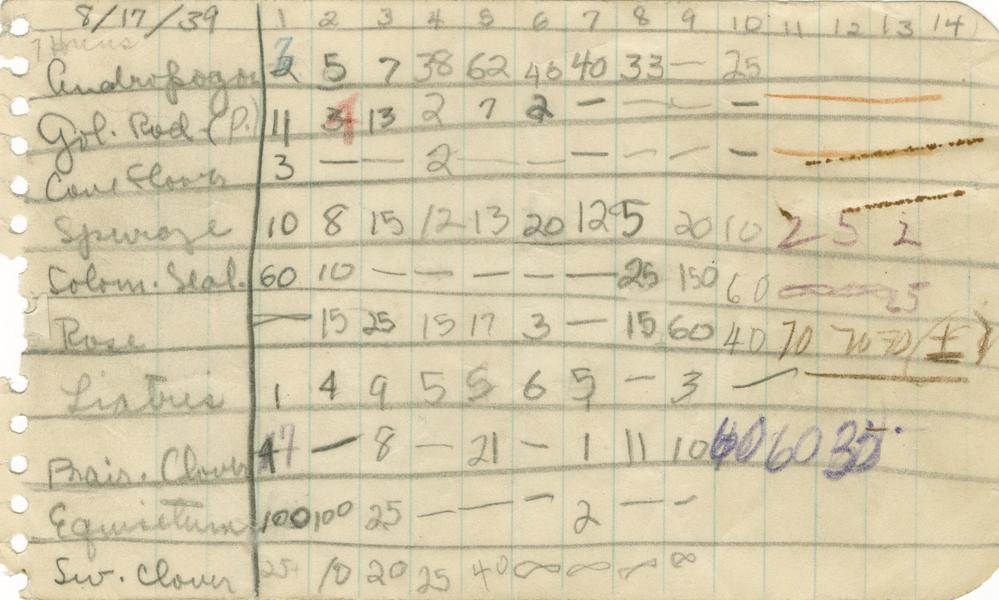 8/17/39 1 2 3 4 5 6 7 8 9 10 11 12 13 14
Andropogon 2 5 7 38 62 46 40 33 — 25
Gol. Rod (P.) 11 13 2 7 2 — — — —
Cone Flower 3 — — 2 — — — — — —
Spurge 10 8 15 12 13 20 12 5 20 10 2 5 2
Solom. Seal. 60 10 — — — — — 25 150 60 25
Rose — 15 25 15 17 3 — 15 60 40 70 70 70
Liatris 1 4 9 5 5 6 5 — 3 —
Prair. Clover — 8 — 21 — 1 11 10 60 60
Equisetum 100 100 25 — — — 2 — —
Sw. Clover 25 10 20 25 40 ∞ ∞ ∞